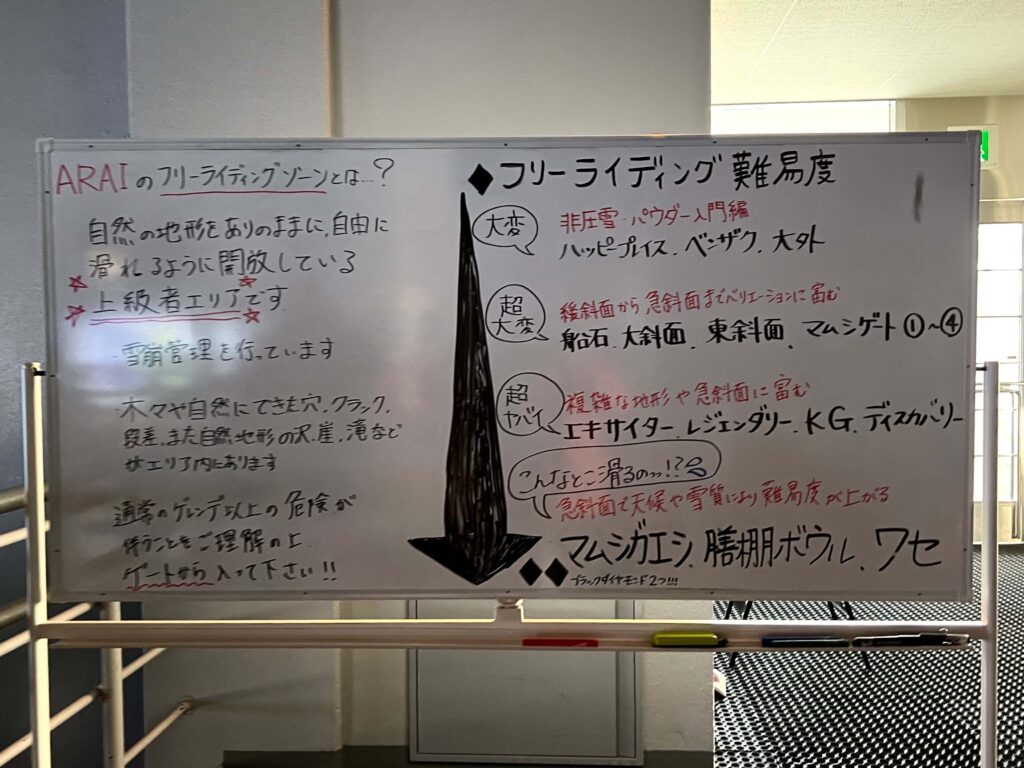 ARAIのフリーライディングゾーンとは…?
自然の地形をありのままに、自由に
滑れるように開放している
上級者エリアです
・雪崩管理を行っています
・木々や自然にできた穴、クラック、
段差、また自然地形の沢、崖、滝など
がエリア内にあります
通常のゲレンデ以上の危険が
伴うことをご理解の上
ゲートから入って下さい!!
◆フリーライディング難易度
大変
非圧雪・パウダー入門編
ハッピープレイス、ベンザク、大外
超大変
緩斜面から急斜面までバリエーションに富む
船石、大斜面、東斜面、マムシゲート①~④
超ヤバイ
複雑な地形や急斜面に富む
エキサイター、レジェンダリー、KG、ディスカバリー
こんなとこ滑るのっ!?
急斜面で天候や雪質により難易度が上がる
◆◆マムシガエシ、膳棚ボウル、ワセ
ブラックダイヤモンド2つ!!!